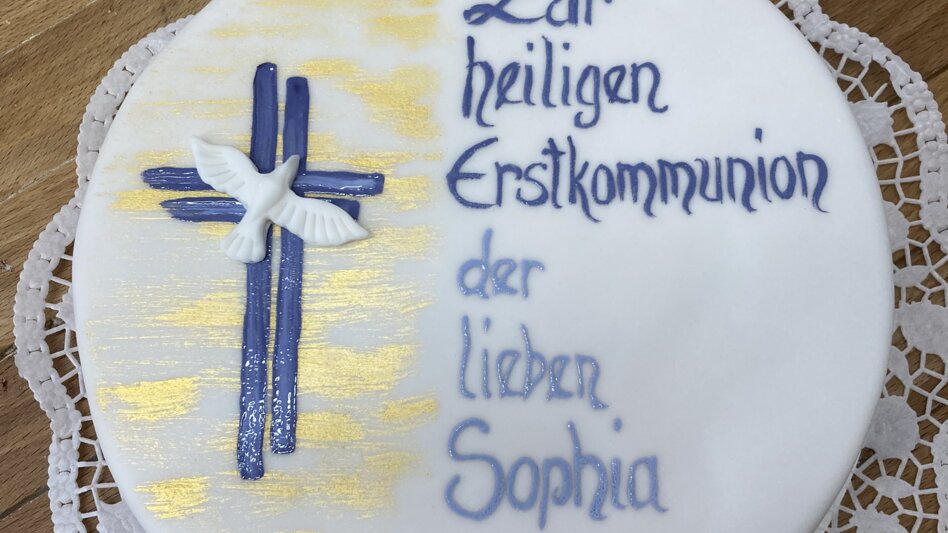 Zur
heiligen
Erstkommunion
der
lieben
Sophia